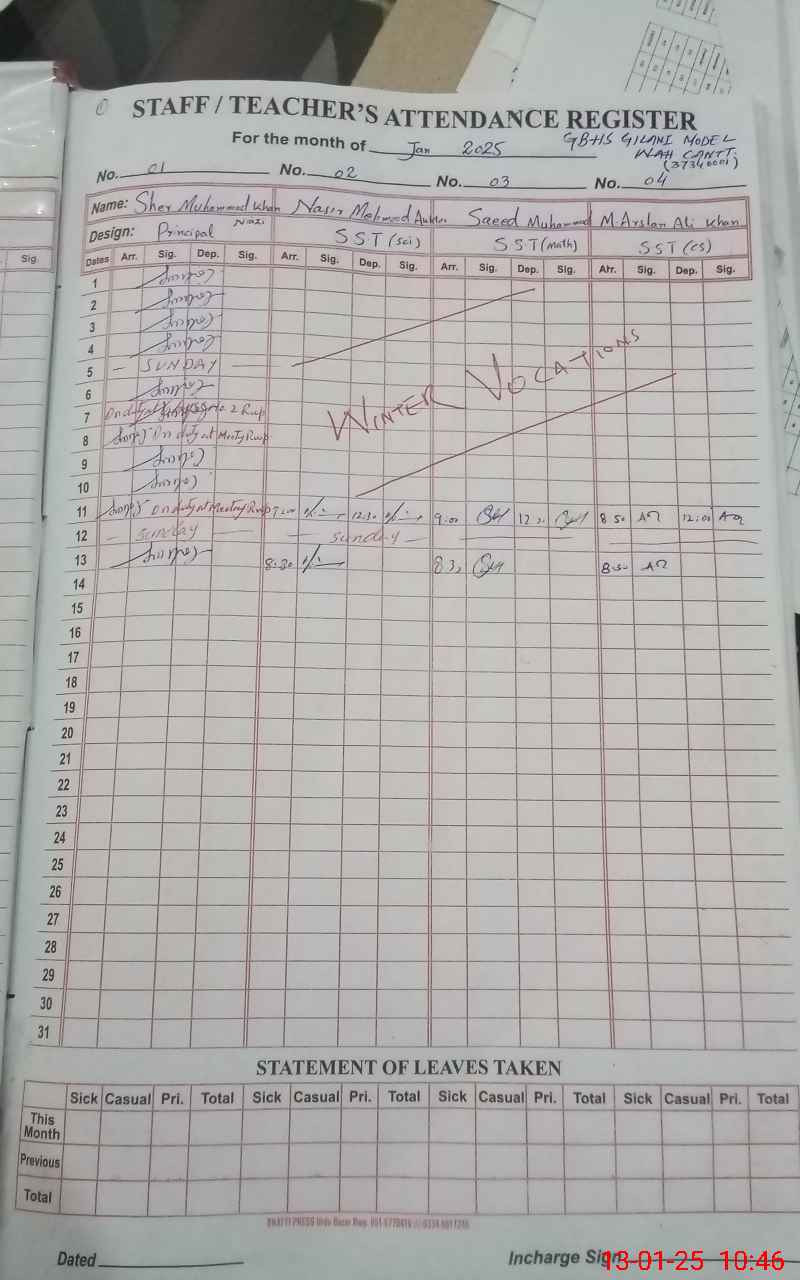 STAFF / TEACHER'S ATTENDANCE REGISTER
For the month of Jan 2025 GBHS GILANI MODEL
WAH CANTT.
(37340001)
No. 01 No. 02 No. 03 No. 04
Name: Sher Muhammad Khan Niazi Nasir Mehmood Saeed Muhammad M. Arslan Ali Khan
Design: Principal SST (Sci) SST (math) SST (cs)
Sig. Dates Arr. Sig. Dep. Sig. Arr. Sig. Dep. Sig. Arr. Sig. Dep. Sig. Arr. Sig. Dep. Sig.
1
2
3
4
5 — SUNDAY —
6
WINTER VOCATIONS
7 On duty at
8 On duty at Meety Rwp
9
10
11 On duty at Meeting Rwp 12:30 9:00 8 50 12:00
12 — Sunday — — Sunday —
13 8:30 8 3 8:50
14
15
16
17
18
19
20
21
22
23
24
25
26
27
28
29
30
31
STATEMENT OF LEAVES TAKEN
Sick Casual Pri. Total Sick Casual Pri. Total Sick Casual Pri. Total Sick Casual Pri. Total
This Month
Previous
Total
Dated Incharge Sign
13-01-25 10:46